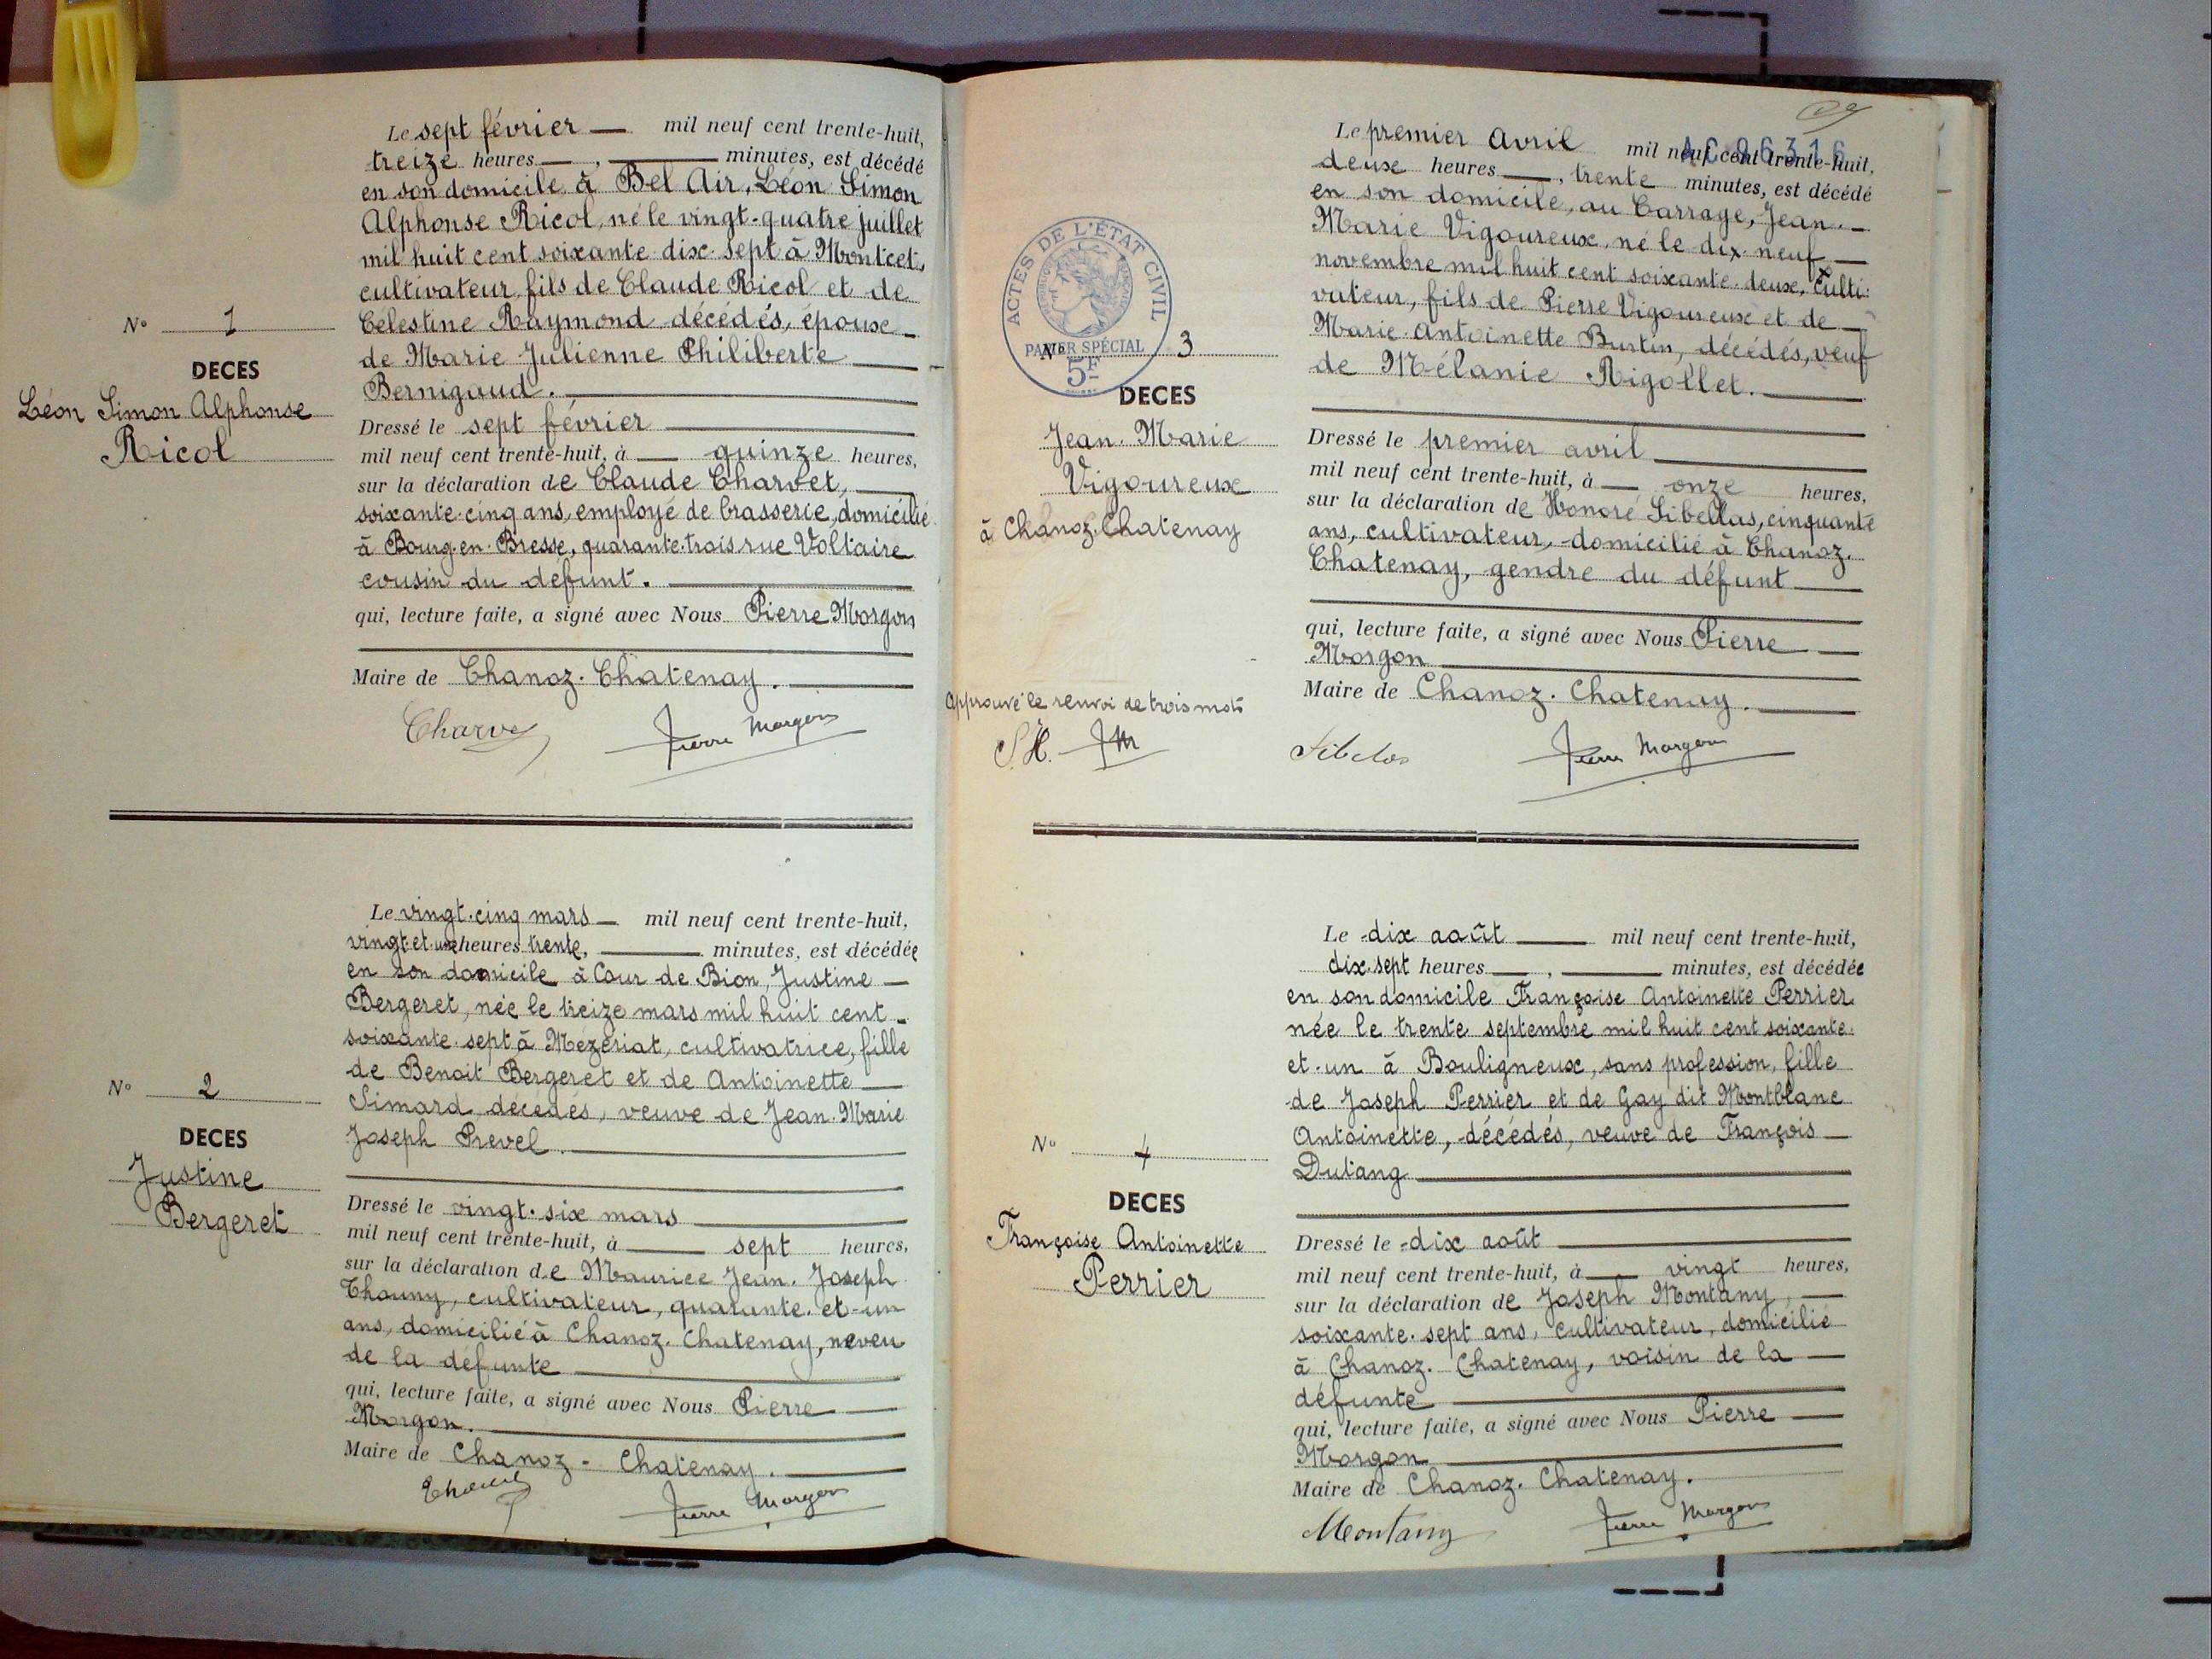 Le sept février — mil neuf cent trente-huit,
treize heures — , — minutes, est décédé
en son domicile à Bel Air, Léon Simon
Alphonse Ricol, né le vingt-quatre juillet
mil huit cent soixante-dix-sept à Montcet,
cultivateur, fils de Claude Ricol et de
Célestine Raymond décédés, époux
de Marie Julienne Philiberte
Bernigaud.
N° 1
DECES
Léon Simon Alphonse
Ricol
Dressé le sept février
mil neuf cent trente-huit, à — quinze heures,
sur la déclaration de Claude Charvet,
soixante-cinq ans, employé de brasserie, domicilié
à Bourg-en-Bresse, quarante-trois rue Voltaire
cousin du défunt.
qui, lecture faite, a signé avec Nous Pierre Morgon
Maire de Chanoz-Chatenay.
Charvet
Pierre Morgon
Le vingt-cinq mars — mil neuf cent trente-huit,
vingt-et-une heures trente, — minutes, est décédée
en son domicile à Cour de Bion, Justine
Bergeret, née le treize mars mil huit cent
soixante-sept à Mézériat, cultivatrice, fille
de Benoit Bergeret et de Antoinette
Simard décédés, veuve de Jean-Marie
Joseph Prevel.
N° 2
DECES
Justine
Bergeret
Dressé le vingt-six mars
mil neuf cent trente-huit, à — sept heures,
sur la déclaration de Maurice Jean-Joseph
cultivateur, quarante-et-un
ans, domicilié à Chanoz-Chatenay, neveu
de la défunte
qui, lecture faite, a signé avec Nous Pierre
Morgon.
Maire de Chanoz-Chatenay.
Pierre Morgon
Le premier avril mil neuf cent trente-huit,
deux heures — , trente minutes, est décédé
en son domicile, au Carrage, Jean-
Marie Vigoureux, né le dix-neuf
novembre mil huit cent soixante-deux, culti-
vateur, fils de Pierre Vigoureux et de
Marie-Antoinette Burtin, décédés, veuf
de Mélanie Rigollet.
ACTES DE L'ÉTAT CIVIL
PAPIER SPÉCIAL
5F
N° 3
DECES
Jean-Marie
Vigoureux
à Chanoz-Chatenay
Dressé le premier avril
mil neuf cent trente-huit, à — onze heures,
sur la déclaration de Honoré Sibellas, cinquante
ans, cultivateur, domicilié à Chanoz-
Chatenay, gendre du défunt
qui, lecture faite, a signé avec Nous Pierre
Morgon
Maire de Chanoz-Chatenay.
Approuvé le renvoi de trois mots
S.H. PM
Sibelas
Pierre Morgon
Le dix août — mil neuf cent trente-huit,
dix-sept heures — , — minutes, est décédée
en son domicile Françoise Antoinette Perrier
née le trente septembre mil huit cent soixante-
et-un à Bouligneux, sans profession, fille
de Joseph Perrier et de Gay dit Montblanc
Antoinette, décédés, veuve de François
Dutang
N° 4
DECES
Françoise Antoinette
Perrier
Dressé le dix août
mil neuf cent trente-huit, à — vingt heures,
sur la déclaration de Joseph Montany,
soixante-sept ans, cultivateur, domicilié
à Chanoz-Chatenay, voisin de la
défunte
qui, lecture faite, a signé avec Nous Pierre
Morgon
Maire de Chanoz-Chatenay.
Montany
Pierre Morgon